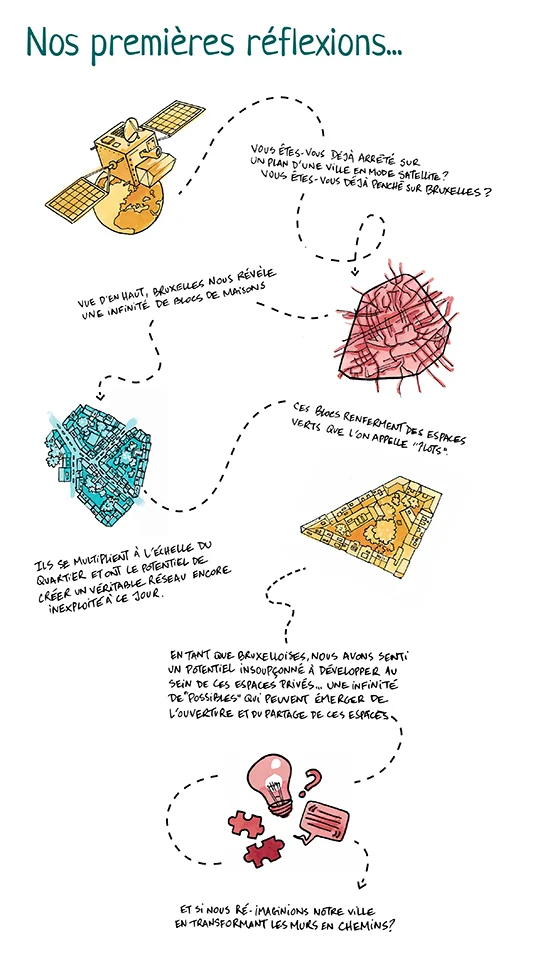 Nos premières réflexions...
VOUS ÊTES-VOUS DÉJÀ ARRÊTÉ SUR
UN PLAN D'UNE VILLE EN MODE SATELLITE?
VOUS ÊTES-VOUS DÉJÀ PENCHÉ SUR BRUXELLES?
VUE D'EN HAUT, BRUXELLES NOUS RÉVÈLE
UNE INFINITÉ DE BLOCS DE MAISONS
CES BLOCS RENFERMENT DES ESPACES
VERTS QUE L'ON APPELLE "ILOTS".
ILS SE MULTIPLIENT À L'ÉCHELLE DU
QUARTIER ET ONT LE POTENTIEL DE
CRÉER UN VÉRITABLE RÉSEAU ENCORE
INEXPLOITÉ À CE JOUR.
EN TANT QUE BRUXELLOISES, NOUS AVONS SENTI
UN POTENTIEL INSOUPÇONNÉ À DÉVELOPPER AU
SEIN DE CES ESPACES PRIVÉS... UNE INFINITÉ
DE "POSSIBLES" QUI PEUVENT ÉMERGER DE
L'OUVERTURE ET DU PARTAGE DE CES ESPACES
?
ET SI NOUS RÉ-IMAGINIONS NOTRE VILLE
EN TRANSFORMANT LES MURS EN CHEMINS?